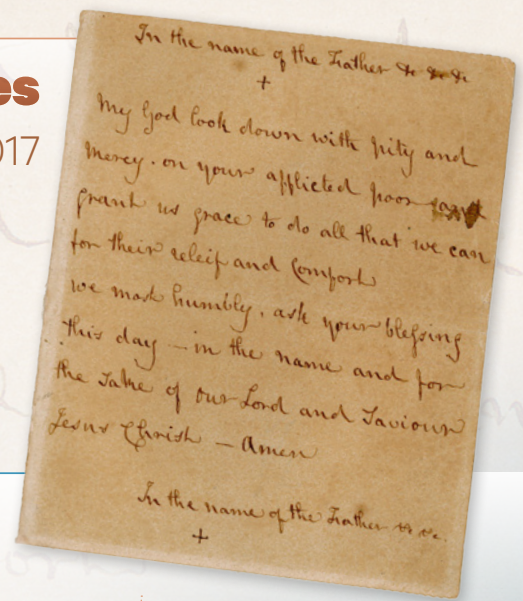 es
017
In the name of the Father &c &c &c
+
My God look down with pity and
mercy. on your afflicted poor and
grant us grace to do all that we can
for their releif and Comfort
we most humbly, ask your blessing
this day – in the name and for
the sake of our Lord and Saviour
Jesus Christ – Amen
In the name of the Father &c &c.
+